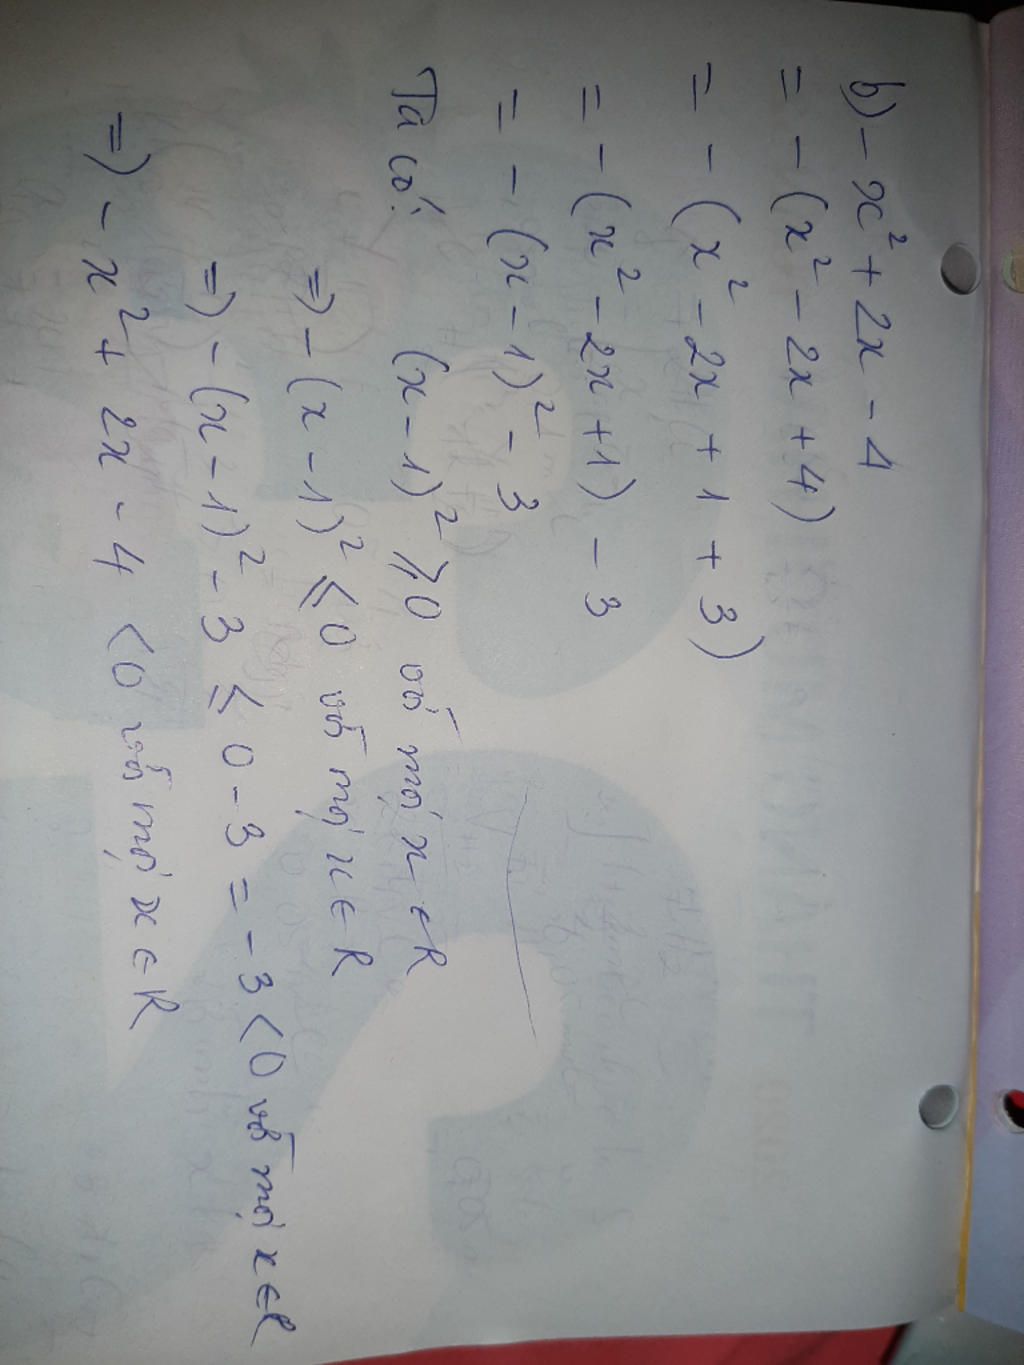 b) - x² + 2x - 4
= - (x² - 2x + 4)
= - (x² - 2x + 1 + 3)
= - (x² - 2x + 1) - 3
= - (x - 1)² - 3
Ta có: (x - 1)² ⩾ 0 với mọi x ∈ R
=) - (x - 1)² ≤ 0 với mọi x ∈ R
=) - (x - 1)² - 3 ≤ 0 - 3 = - 3 < 0 với mọi x ∈ R
=) - x² + 2x - 4 < 0 với mọi x ∈ R